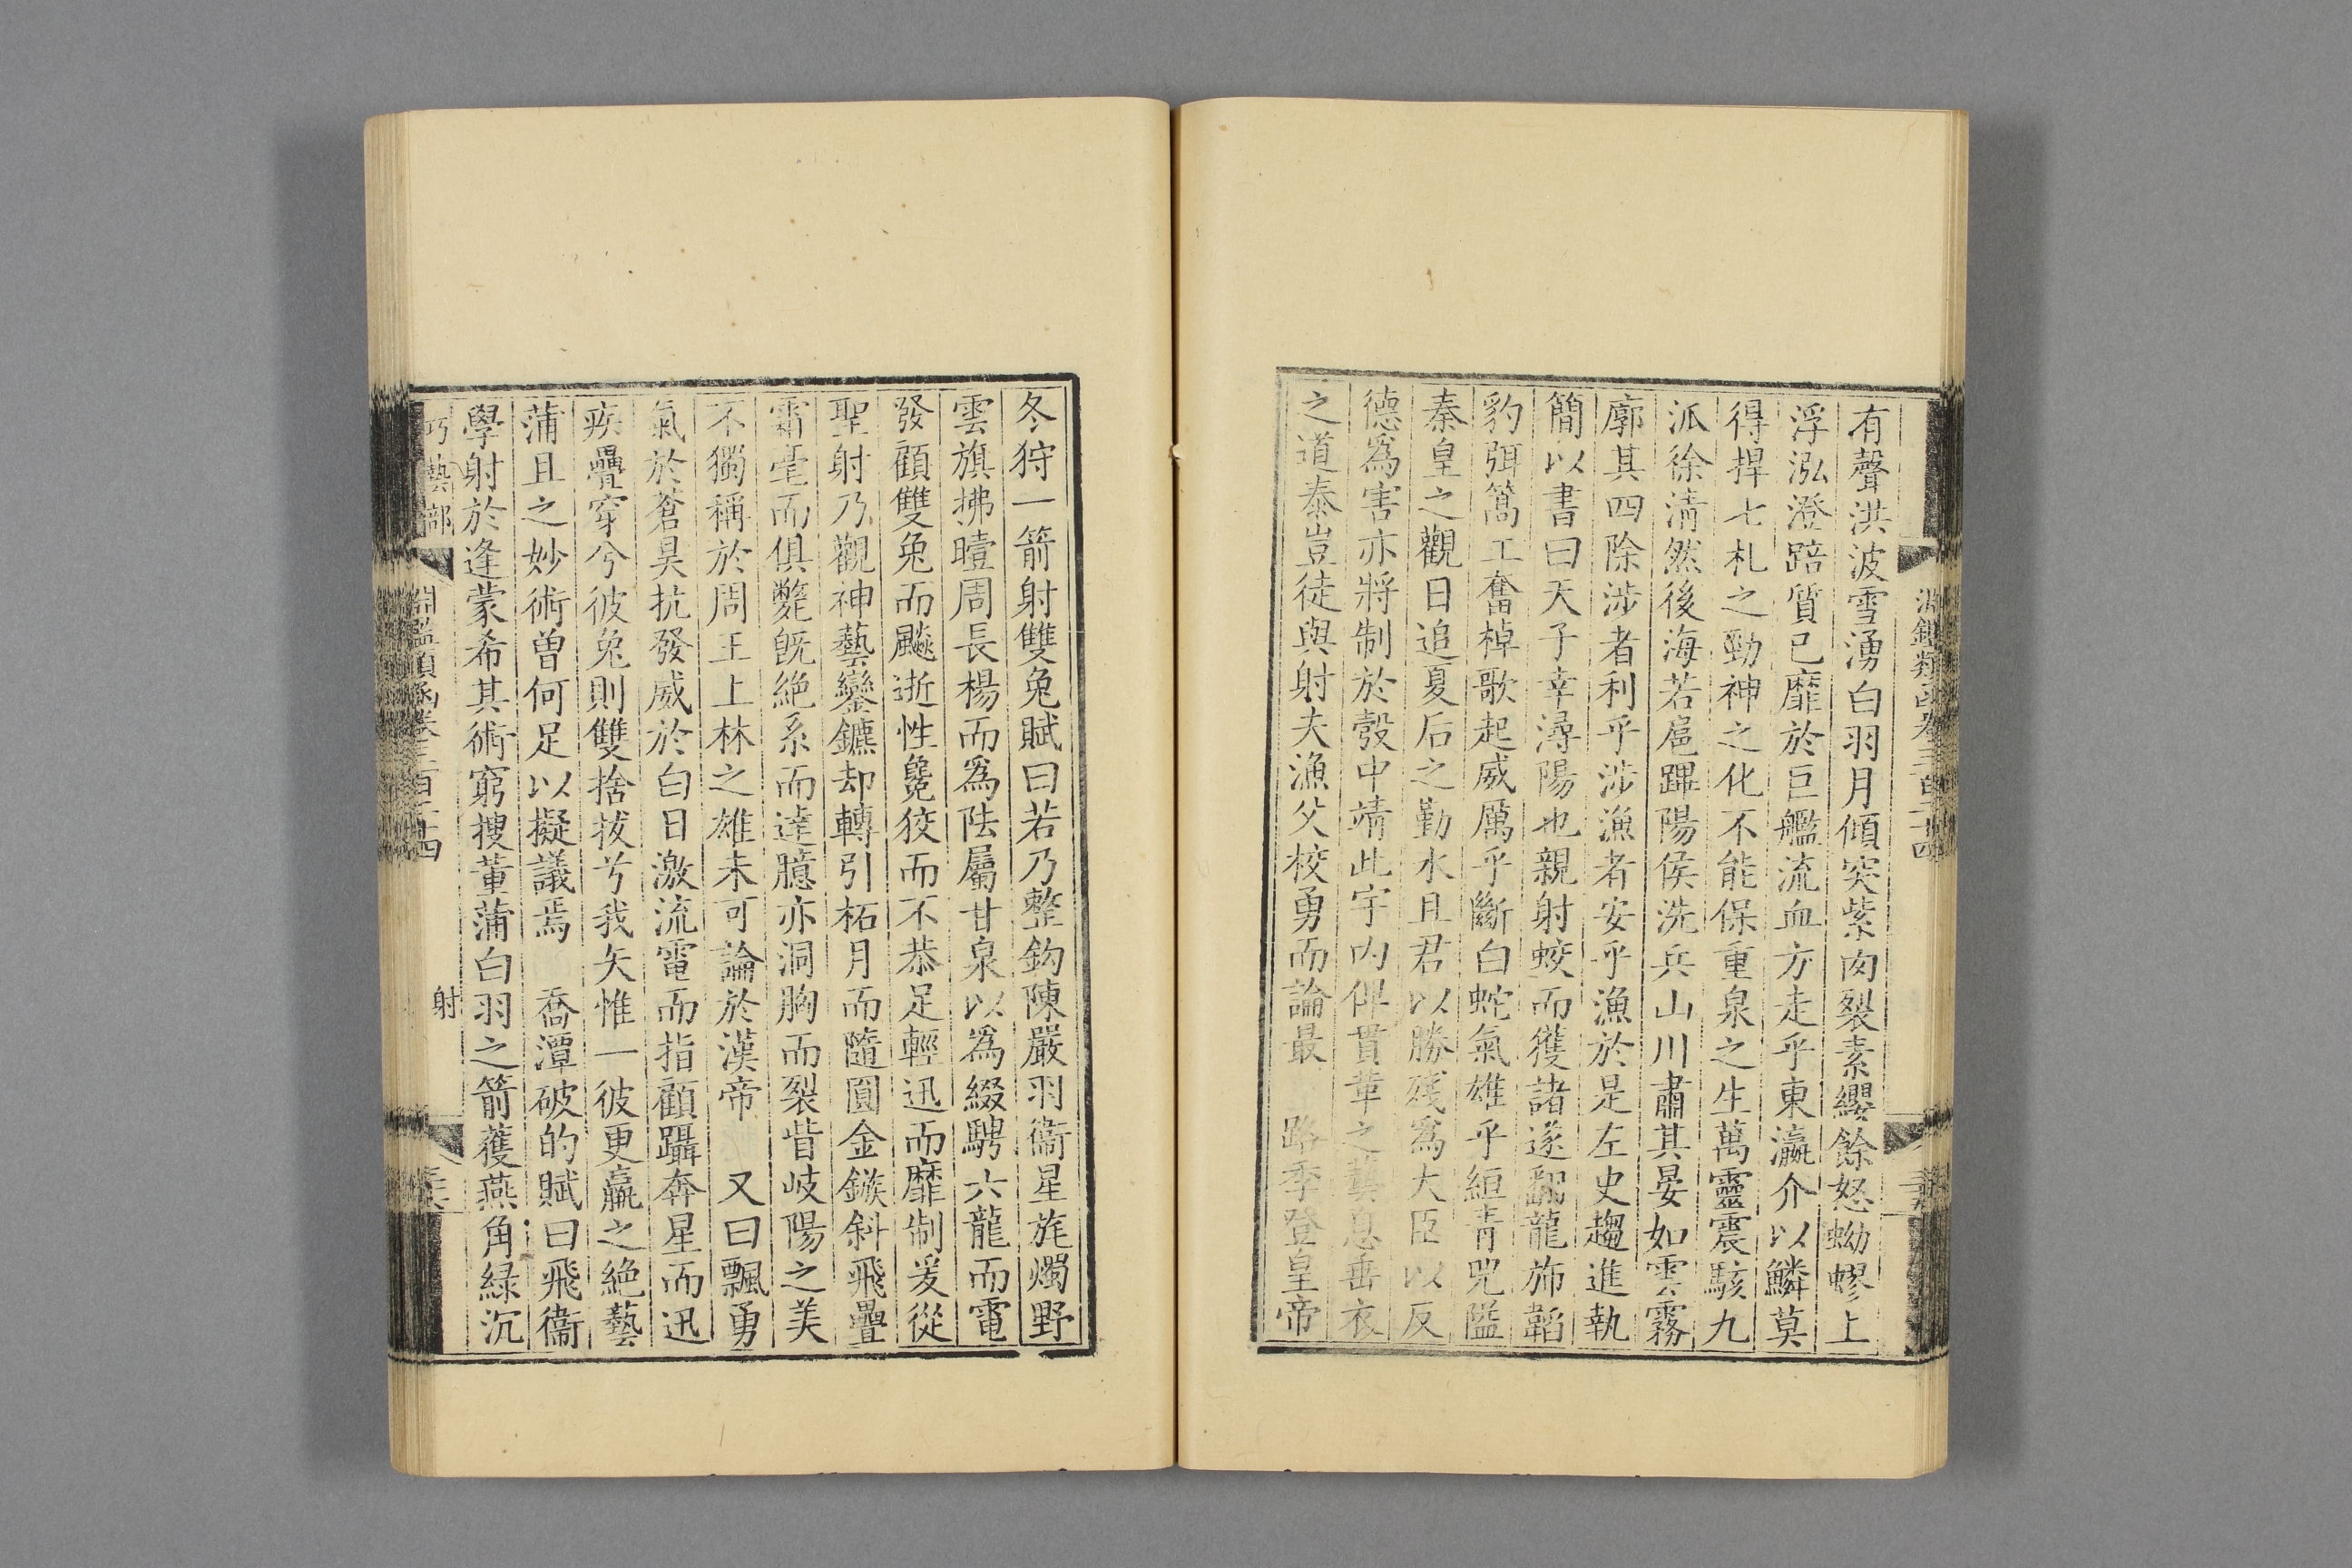 淵鑑類函卷三百二十四
有聲洪波雪湧白羽月傾突紫肉裂素纓餘怒蚴蟉上
浮泓澄踣質已靡於巨艦流血方走乎東瀛介以鱗莫
得捍七札之勁神之化不能保重泉之生萬靈震駭九
派徐清然後海若扈蹕陽侯洗兵山川肅其晏如雲霧
廓其四除涉者利乎涉漁者安乎漁於是左史趨進執
簡以書曰天子幸潯陽也親射蛟而獲諸遂翻龍斾韜
豹弭篙工奮棹歌起威厲乎斷白蛇氣雄乎絙青兕隘
秦皇之觀日追夏后之勤水且君以勝殘爲大臣以反
德爲害亦將制於彀中靖此宇内俾貫革之藝息垂衣
之道泰豈徒與射夫漁父校勇而論最　路季登皇帝
冬狩一箭射雙兔賦曰若乃整鈎陳嚴羽衞星旄燭野
雲旗拂曀周長楊而爲阹屬甘泉以爲綴騁六龍而電
發顧雙兔而飈逝性毚狡而不恭足輕迅而靡制爰從
聖射乃觀神藝鑾鑣却轉引柘月而隨圓金鏃斜飛疊
霜毫而俱斃旣絶系而達臆亦洞胸而裂眥岐陽之美
不獨稱於周王上林之雄未可論於漢帝　又曰飄勇
氣於蒼昊抗發威於白日激流電而指顧躡奔星而迅
疾疊穿兮彼兔則雙捨拔兮我矢惟一彼更羸之絶藝
蒲且之妙術曾何足以擬議焉　喬潭破的賦曰飛衞
學射於逢蒙希其術窮搜董蒲白羽之箭蒦燕角緑沉
巧藝部 淵鑑類函卷三百二十四 射